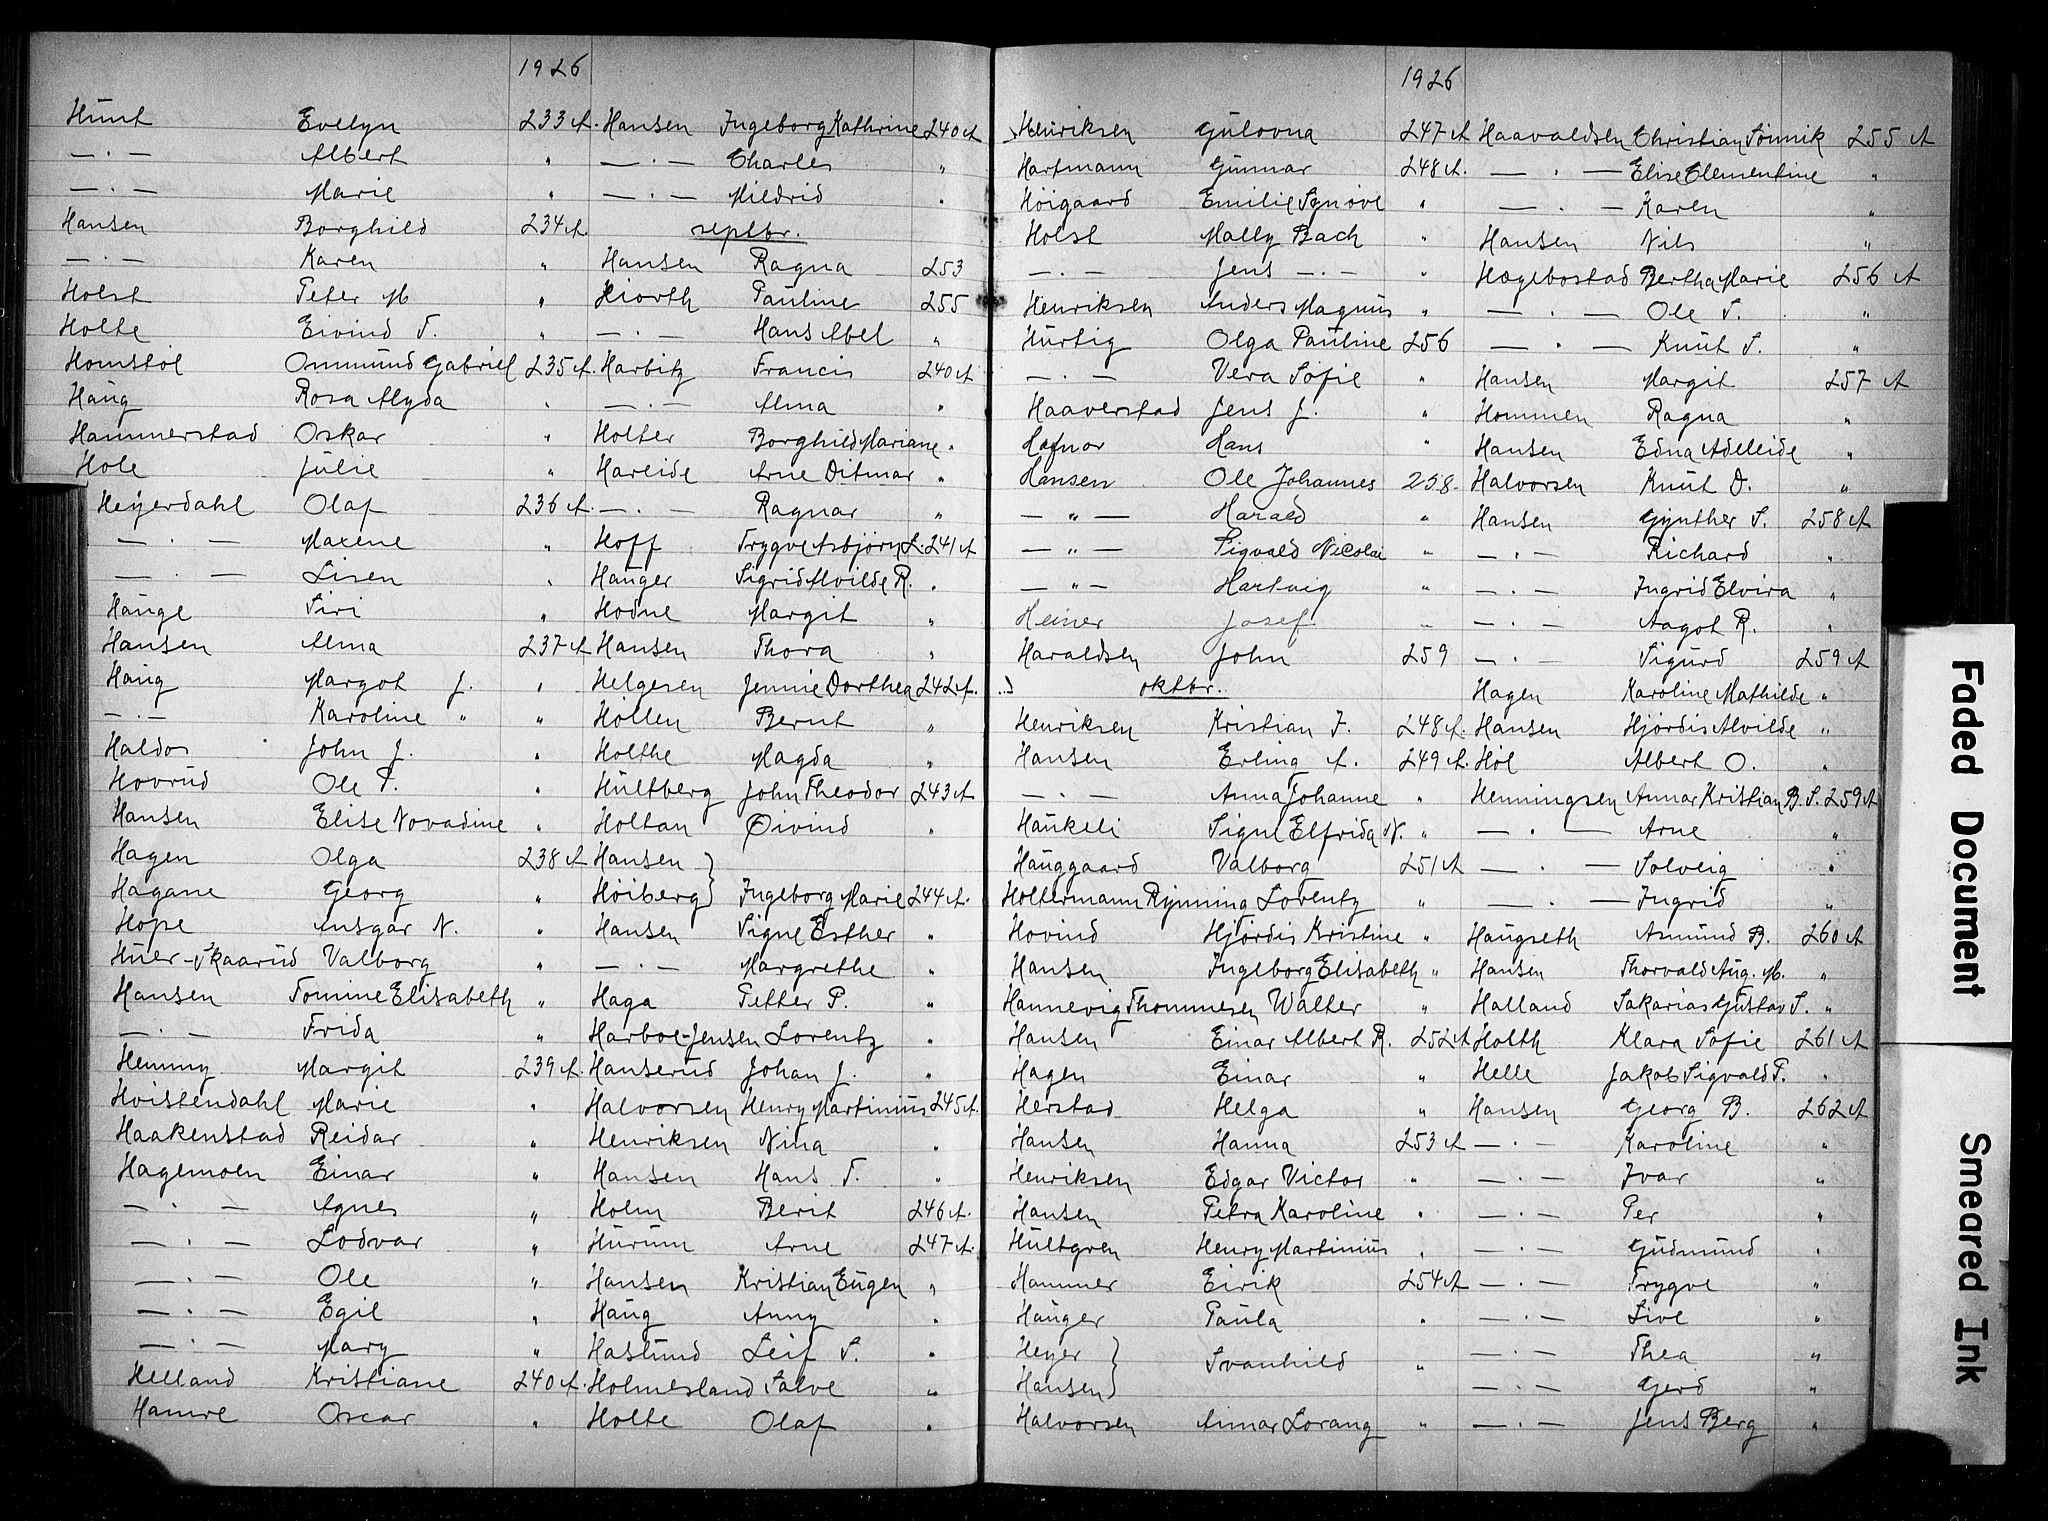 1926
Hunt Evelyn 233 A.
— . — Albert "
— . — Marie "
Hansen Borghild 234 A.
— . — Karen "
Holst Peter M "
Holte Eivind T. "
Homstøl Ommund Gabriel 235 A.
Haug Rosa Alyda "
Hammerstad Oskar "
Hole Julie "
Heyerdahl Olaf 236 A.
— . — Maxene "
— . — Lisen "
Hauge Siri "
Hansen Alma 237 A
Haug Margot J. "
— . — Karoline " "
Haldos John J. "
Hovrud Ole P. "
Hansen Elise Novadine "
Hagen Olga 238 A
Hagane Georg "
Hope Ansgar N. "
Huer-Skaarud Valborg "
Hansen Tomine Elisabeth "
— . — Frida "
Hemmy Margit 239 A.
Hvistendahl Marie "
Haakenstad Reidar "
Hagemoen Einar "
— . — Agnes "
— . — Lodvar "
— . — Ole "
— . — Egil "
— . — Mary "
Helland Kristiane 240 A.
Hamre Oscar "
Hansen Ingeborg Kathrine 240 A
— . — Charles "
— . — Mildrid "
septbr.
Hansen Ragna 253
Hiorth Pauline 255
— . — Hans Abel "
Harbitz Francis 240 A
— . — Alma "
Holter Borghild Mariane "
Hareide Arne Ditmar "
— . — Ragnar "
Hoff Trygve Asbjørn L. 241 A
Hauger Sigrid Alvilde R. "
Hodne Margit "
Hansen Thora "
Helgesen Jennie Dorthea 242 A.
Hollen Bernt "
Holthe Magda "
Hultberg John Theodor 243 A
Holtan Øivind "
Hansen }
Høiberg } Ingeborg Marie 244 A.
Hansen Signe Esther "
— . — Margrethe "
Haga Petter P. "
Harboe-Jensen Lorentz "
Hanserud Johan J. "
Halvorsen Henry Martinius 245 A.
Henriksen Nina "
Hansen Hans T. "
Holm Berit 246 A.
Hurum Arne 247 A.
Hansen Kristian Eugen "
Haug Anny "
Haslund Leif S. "
Holmesland Salve "
Holte Olaf "
1926
Henriksen Gulovna 247 A
Hartmann Gunnar 248 A.
Høigaard Emilie Synøve "
Holst Mally Bach "
— . — Jens — . — "
Henriksen Anders Magnus "
Hurtig Olga Pauline 256
— . — Vera Sofie "
Haaverstad Jens J. "
Hafnor Hans "
Hansen Ole Johannes 258
— " — Harald "
— " — Sigvald Nicolai "
— " — Hartvig "
Heiner Josef "
Haraldsen John 259
oktbr.
Henriksen Kristian F. 248 A.
Hansen Erling A. 249 A.
— . — Anna Johanne "
Haukeli Signe Elfrida N. "
Hauggaard Valborg 251 A
Holtermann Rynning Lorentz "
Hovind Hjørdis Kristine "
Hansen Ingeborg Elisabeth "
Hannevig Thommesen Walter "
Hansen Einar Albert R. 252 A
Hagen Einar "
Herstad Helga "
Hansen Hanna 253 A
Henriksen Edgar Victor "
Hansen Petra Karoline "
Hultgren Henry Martinius "
Hammer Eirik 254 A
Hauger Paula "
Heyer }
Hansen } Svanhild "
Halvorsen Annar Lorang "
Haavaldsen Christian Tønnik 255 A
— . — Elise Clementine "
— . — Karen "
Hansen Nils "
Hægebostad Bertha Marie 256 A
— . — Ole S. "
— . — Knut S. "
Hansen Margit 257 A
Hommen Ragna "
Hansen Edna Adeleide "
Halvorsen Knut D. "
Hansen Gynther S. 258 A
— . — Richard "
— . — Ingrid Elvira "
— . — Aagot R. "
— . — Sigurd 259 A
Hagen Karoline Mathilde "
Hansen Hjørdis Alvilde "
Høl Albert O. "
Henningsen Annar Kristian B. S. 259 A
— . — Arne "
— . — Solveig "
— . — Ingrid "
Haugseth Asmund B. 260 A
Hansen Thorvald Aug. M. "
Halland Sakarias Gustav S. "
Holth Klara Sofie 261 A
Helle Jakob Sigvald T. "
Hansen Georg B. 262 A
— . — Karoline "
— . — Ivar "
— . — Per "
— . — Gudmund "
— . — Trygve "
— . — Live "
— . — Thea "
— . — Gerd "
— . — Jens Berg "
Faded Document
Smeared Ink